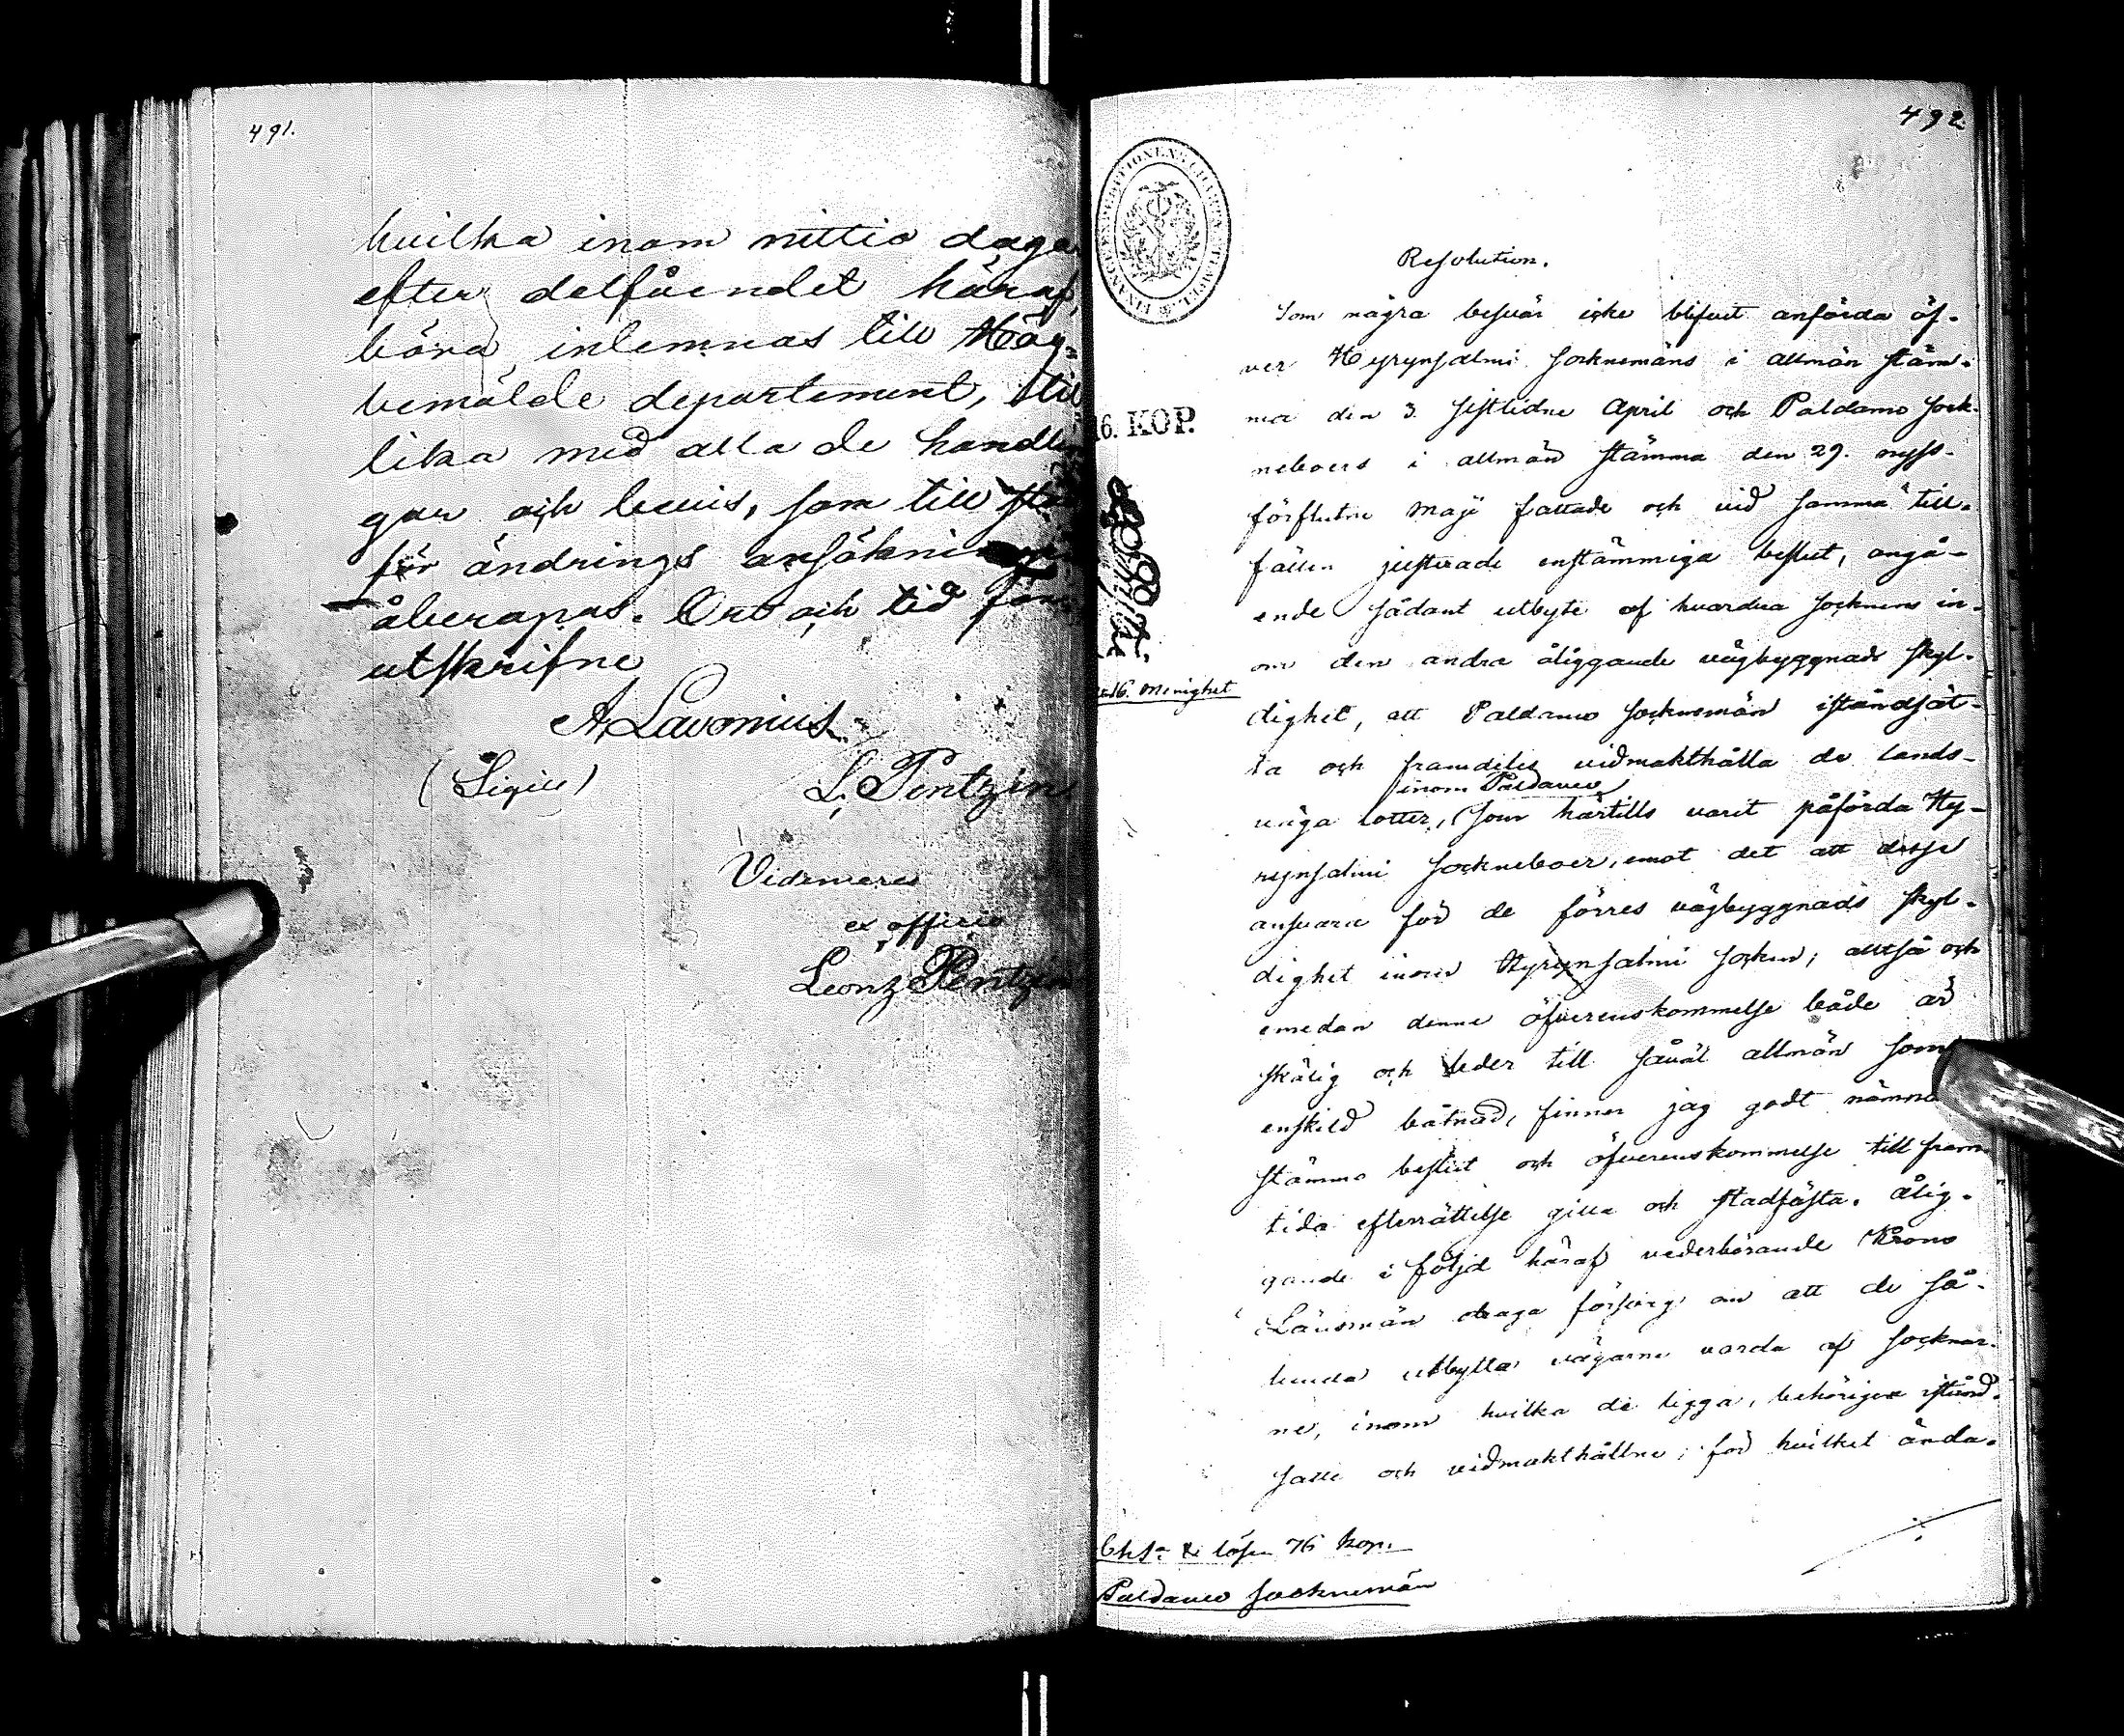 491.
hvilka inom nittio dagar
efter delfåendet häraf,
böra inlemnas till Hög-
bemälde departement, till
lika med alla de handlin
gar och bevis, som till stö
för ändrings ansökning
åberopas. Ort och tid för
utskrifne
A Lavonius
(Sigill) L. Pentzin
Vidimeras
ex officio
Leonz Pentzin
492
FINANCE EXPEDITIONENS CHARTÆ STEMPEL
16. KOP.
16. Menighet
Resolution.
Som några besvär icke blifvit anförda öf-
ver Hyrynsalmi Socknemäns i allmän stäm-
ma den 3. sistlidne April och Paldamo Sock-
neboers i allmän stämma den 29. nyss-
förflutne Maji fattade och vid samma till-
fällen justerade enstämmiga beslut, angå-
ende sådant utbyte af hvardera Socknens in-
om den andra åliggande vägbyggnads skyl-
dighet, att Paldamo Socknemän iståndsät-
ta och framdeles vidmakthålla de lands-
inom Paldamo
väga lotter, som härtills varit påförda Hy-
rynsalmi Sockneboer, emot det att desse
ansvara för de förres vägbyggnads skyl-
dighet inom Hyrynsalmi Socken; alltså och
emedan denne öfverenskommelse både är
skälig och leder till såväl allmän som
enskild båtnad, finner jag godt nämnde
stämmo beslut och öfverenskommelse till fram
tida efterrättelse gilla och stadfästa. Ålig-
gande i följd häraf vederbörande Krono
Länsmän draga försorg om att de så-
lunda utbytta vägarne varda af Socknar-
ne, inom hvilka de ligga, behörigen istånd-
satte och vidmakthållne; för hvilket ända-
Chs. & lösen 76 kop.
Paldamo Socknemän